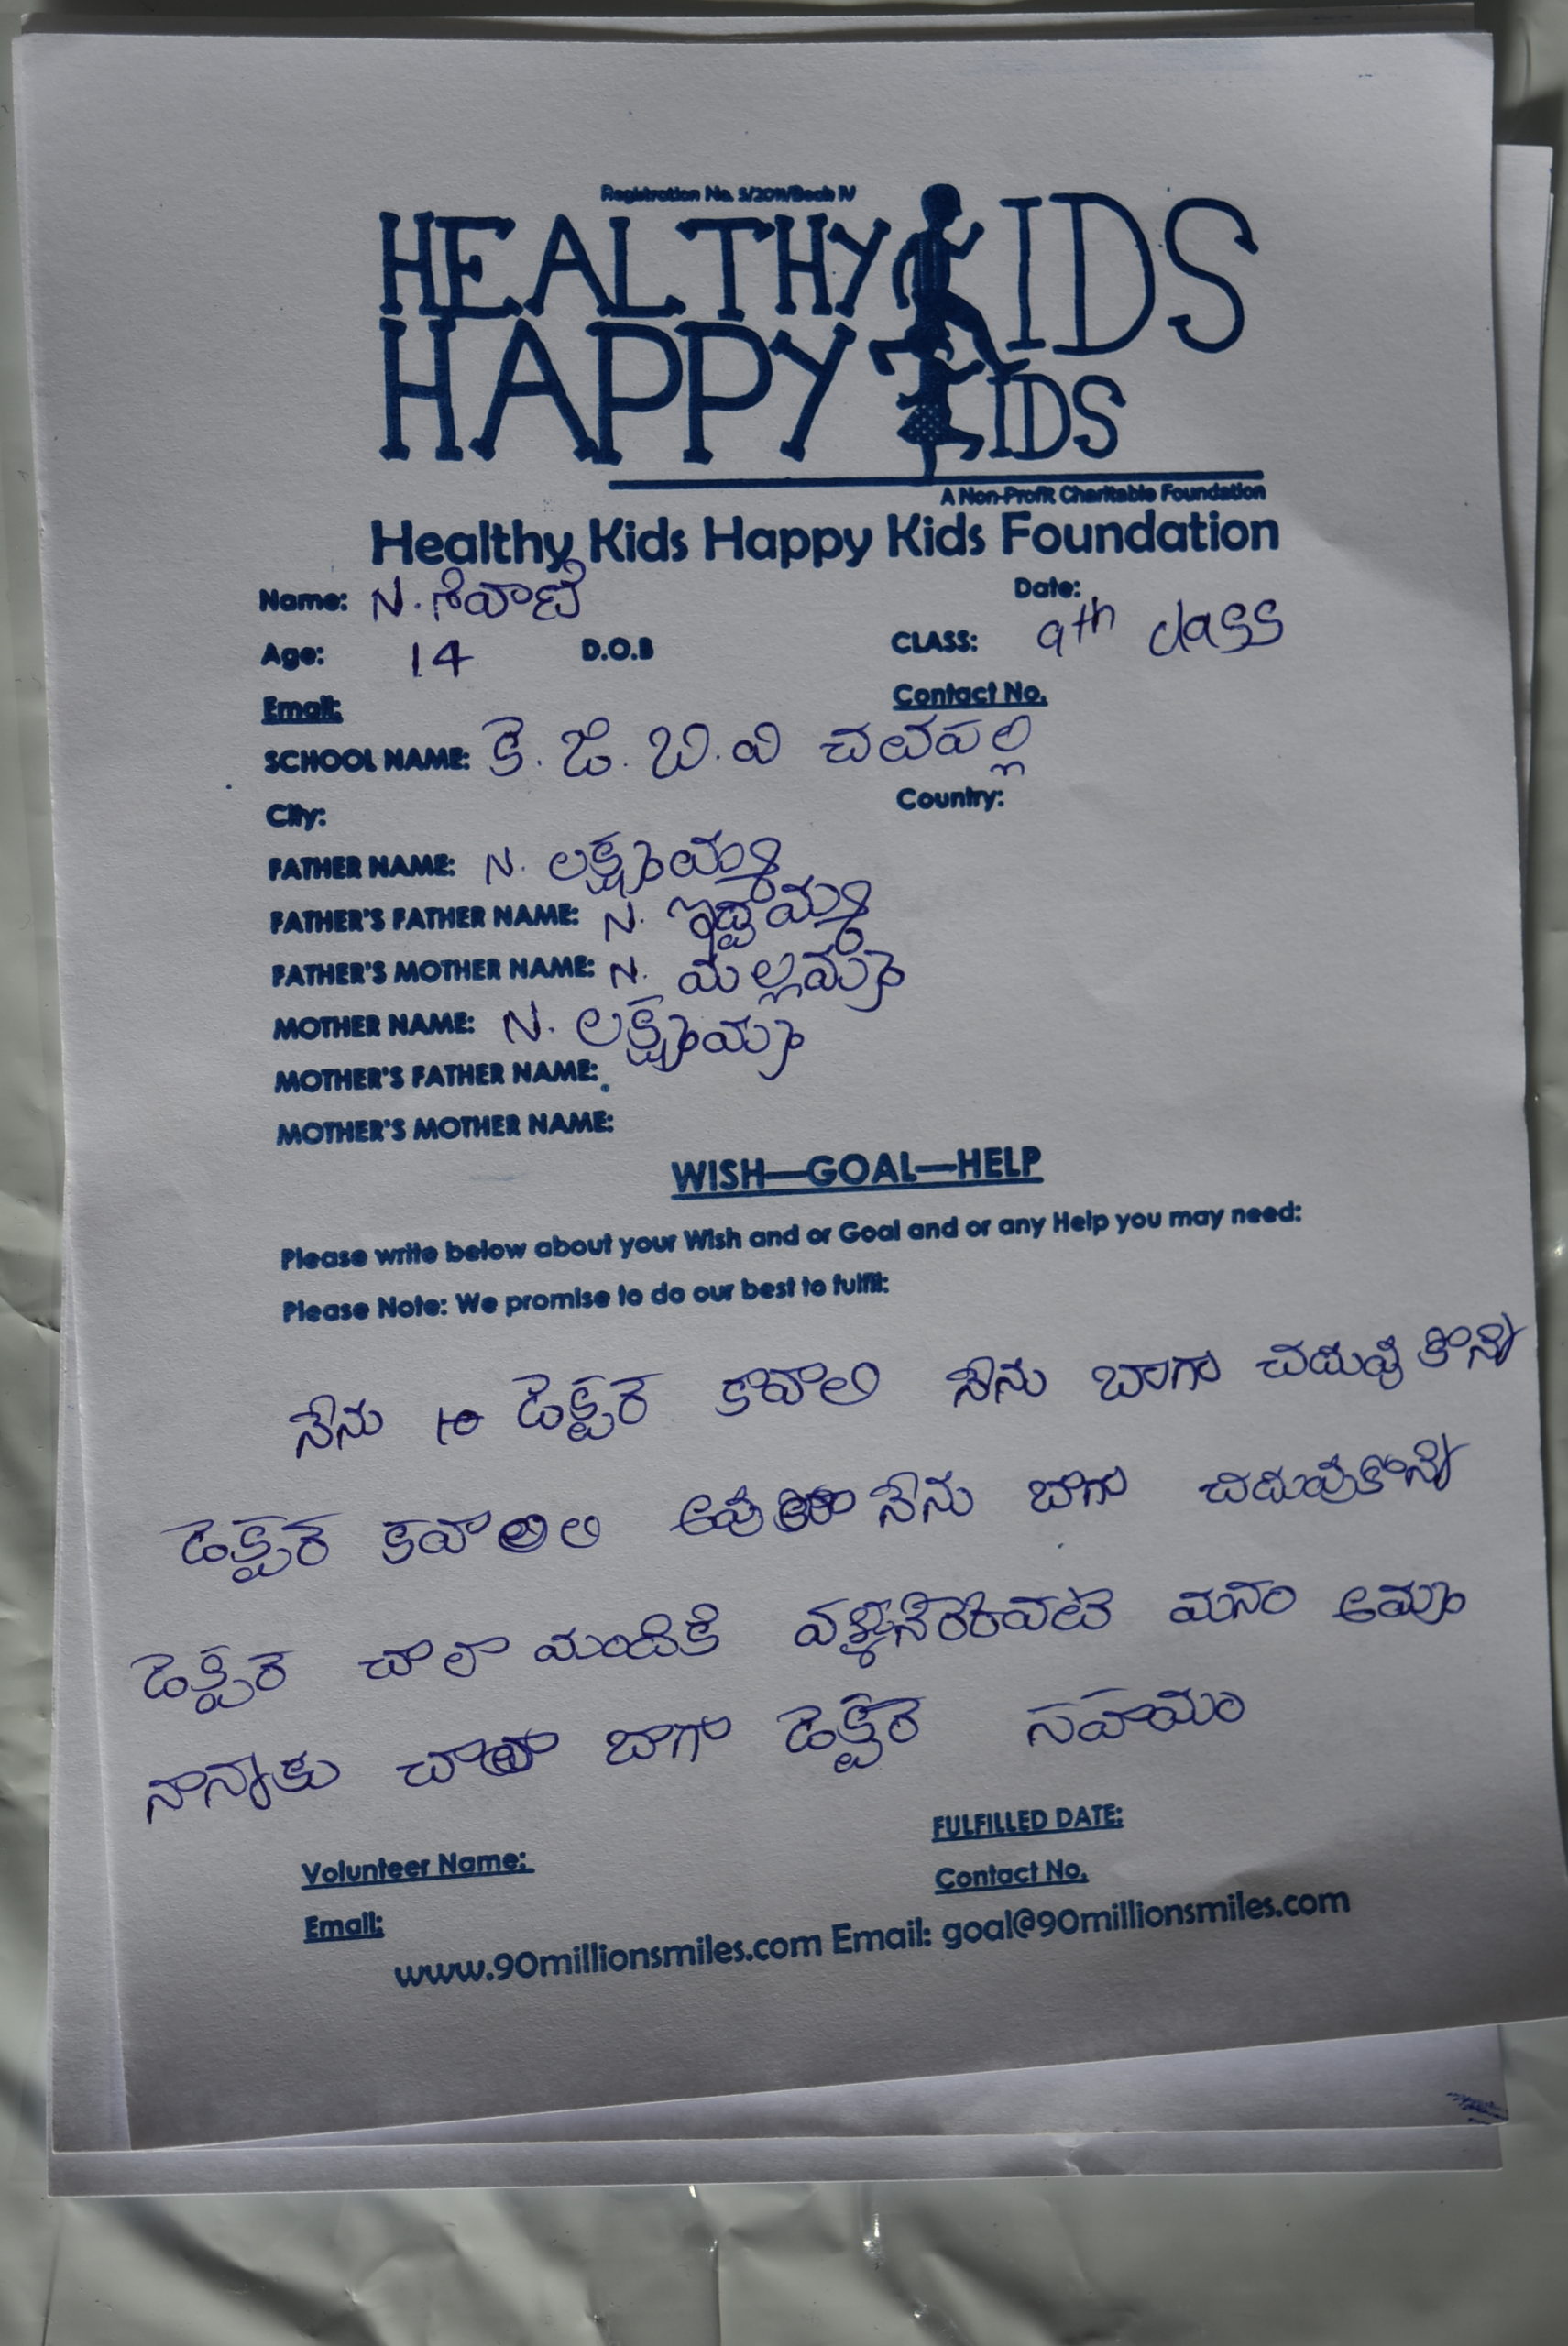 Registration No. 5/2011/Book IV
HEALTHY KIDS
HAPPY KIDS
A Non-Profit Charitable Foundation
Healthy Kids Happy Kids Foundation
Name: N. శివాణి Date:
Age: 14 D.O.B CLASS: 9th class
Email: Contact No.
SCHOOL NAME: కె. జి. బి. వి చలపల్లి
City: Country:
FATHER NAME: N.
FATHER'S FATHER NAME: N.
FATHER'S MOTHER NAME: N. మల్లమ్మ
MOTHER NAME: N. లక్ష్మమ్మ
MOTHER'S FATHER NAME:
MOTHER'S MOTHER NAME:
WISH—GOAL—HELP
Please write below about your Wish and or Goal and or any Help you may need:
Please Note: We promise to do our best to fulfil:
నేను డెక్టర్ కావాలి నేను బాగా చదువు కొని
డెక్టర్ కవాలి నేను బాగా చదువుకొని
డెక్టర్ చాలా మందికి మనం అమ్మ
నాన్నాకు చాలా బాగా డెక్టర్ సహాయం
FULFILLED DATE:
Volunteer Name: Contact No.
Email:
www.90millionsmiles.com Email: goal@90millionsmiles.com